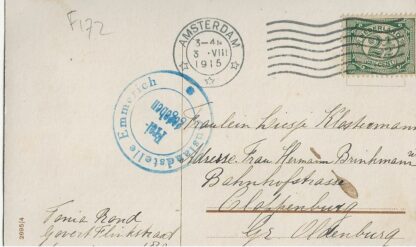 F172
AMSTERDAM
3-4
3 · VIII
1915
2½
Auslandstelle Emmerich
Frei-
gegeben
Fräulein Liesje Klostermann
Adresse Frau Hermann Brinkmann
Bahnhofstrasse
Cloppenburg
Gr. Oldenburg
Tonia Rond
Govert Flinkstraat